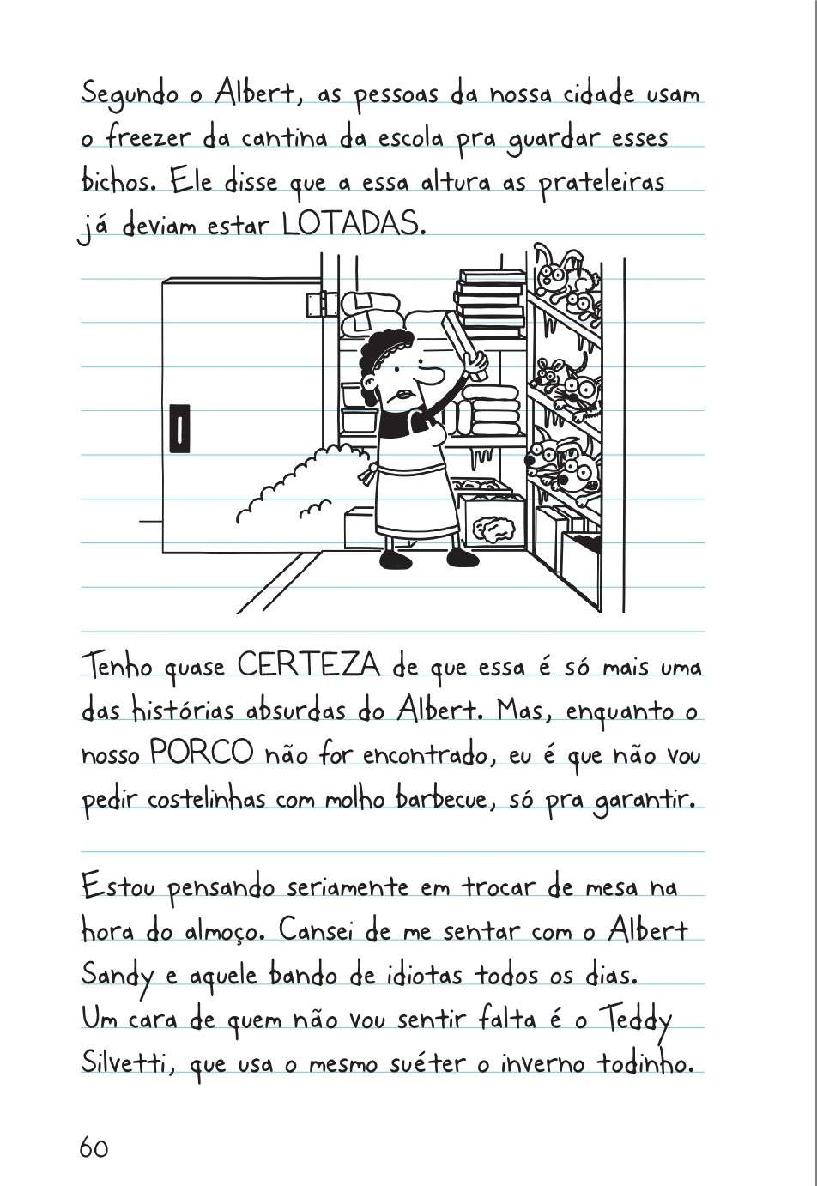 Segundo o Albert, as pessoas da nossa cidade usam
o freezer da cantina da escola pra guardar esses
bichos. Ele disse que a essa altura as prateleiras
já deviam estar LOTADAS.
Tenho quase CERTEZA de que essa é só mais uma
das histórias absurdas do Albert. Mas, enquanto o
nosso PORCO não for encontrado, eu é que não vou
pedir costelinhas com molho barbecue, só pra garantir.
Estou pensando seriamente em trocar de mesa na
hora do almoço. Cansei de me sentar com o Albert
Sandy e aquele bando de idiotas todos os dias.
Um cara de quem não vou sentir falta é o Teddy
Silvetti, que usa o mesmo suéter o inverno todinho.
60